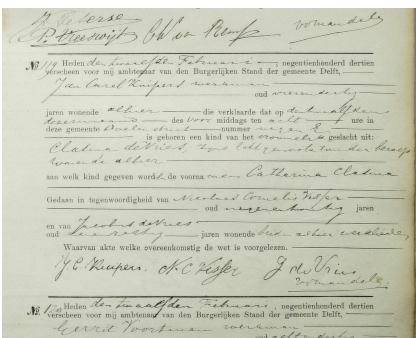 P. Vreeswijk
No. 119 Heden den twaalfden Februari, negentienhonderd dertien
verscheen voor mij ambtenaar van den Burgerlijken Stand der gemeente Delft,
Jan Carel Kuipers werkman
oud
jaren wonende alhier die verklaarde dat op den twaalfden
dezer maand des voor middags ten acht ure in
deze gemeente nummer negen
is geboren een kind van het vrouwelijk geslacht uit:
Clasina de Vries, zijne echtgenoote zonder beroep
wonende alhier
aan welk kind gegeven wordt de voornamen Catharina Clasina
Gedaan in tegenwoordigheid van Nicolaas Cornelis Visser
oud jaren
en van Jacobus de Vries
oud jaren wonende beiden alhier
Waarvan akte welke overeenkomstig de wet is voorgelezen.
J. C. Kuipers. N. C. Visser J. de Vries
No. 120 Heden den twaalfden Februari, negentienhonderd dertien
verscheen voor mij ambtenaar van den Burgerlijken Stand der gemeente Delft,
Gerrit Voortman werkman